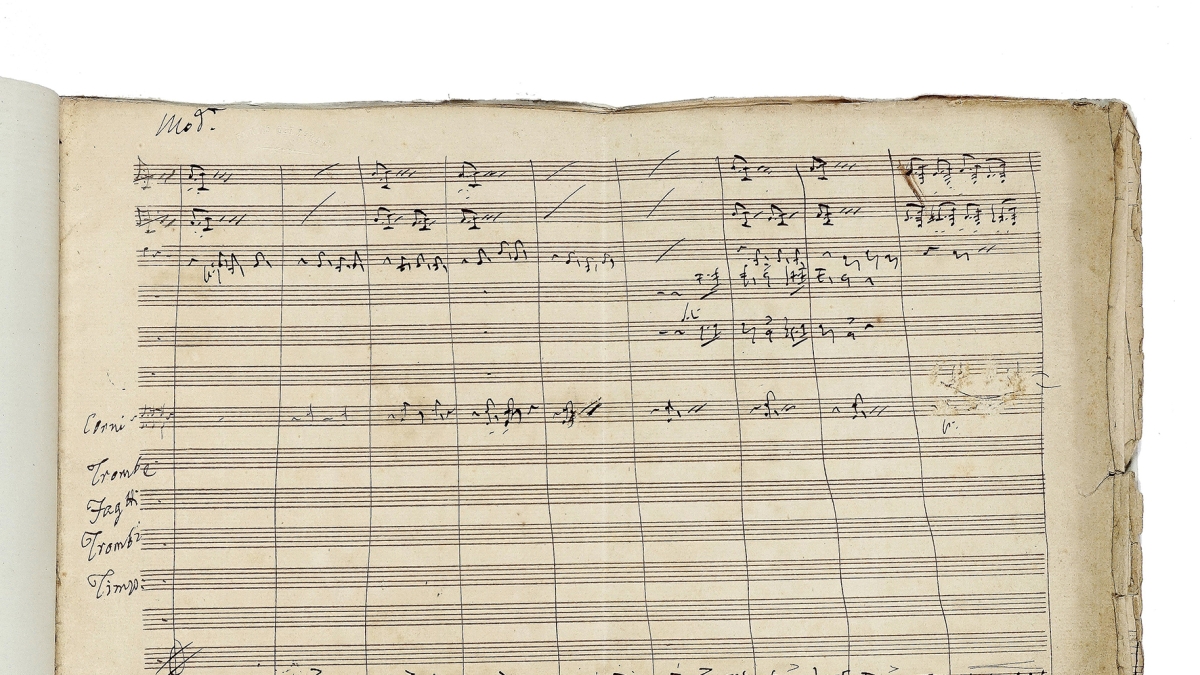 Mod:
Corni
Trombe
Fagtti
Trombi
Timp: